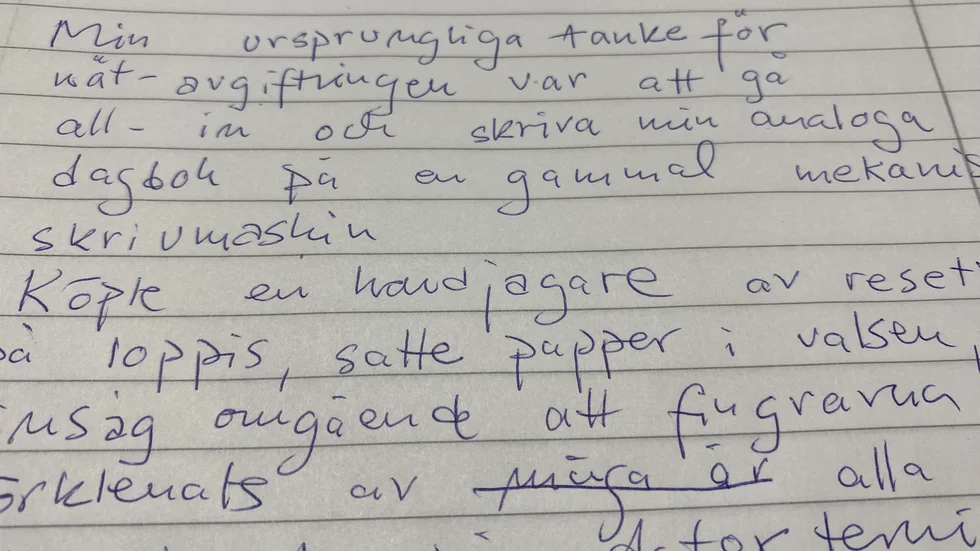 Min ursprungliga tanke för
nät-avgiftningen var att gå
all-in och skriva min analoga
dagbok på en gammal mekanis
skrivmaskin
Köpte en handjagare av reset
på loppis, satte papper i valsen,
insåg omgående att fingrarna
örklenats av många år alla